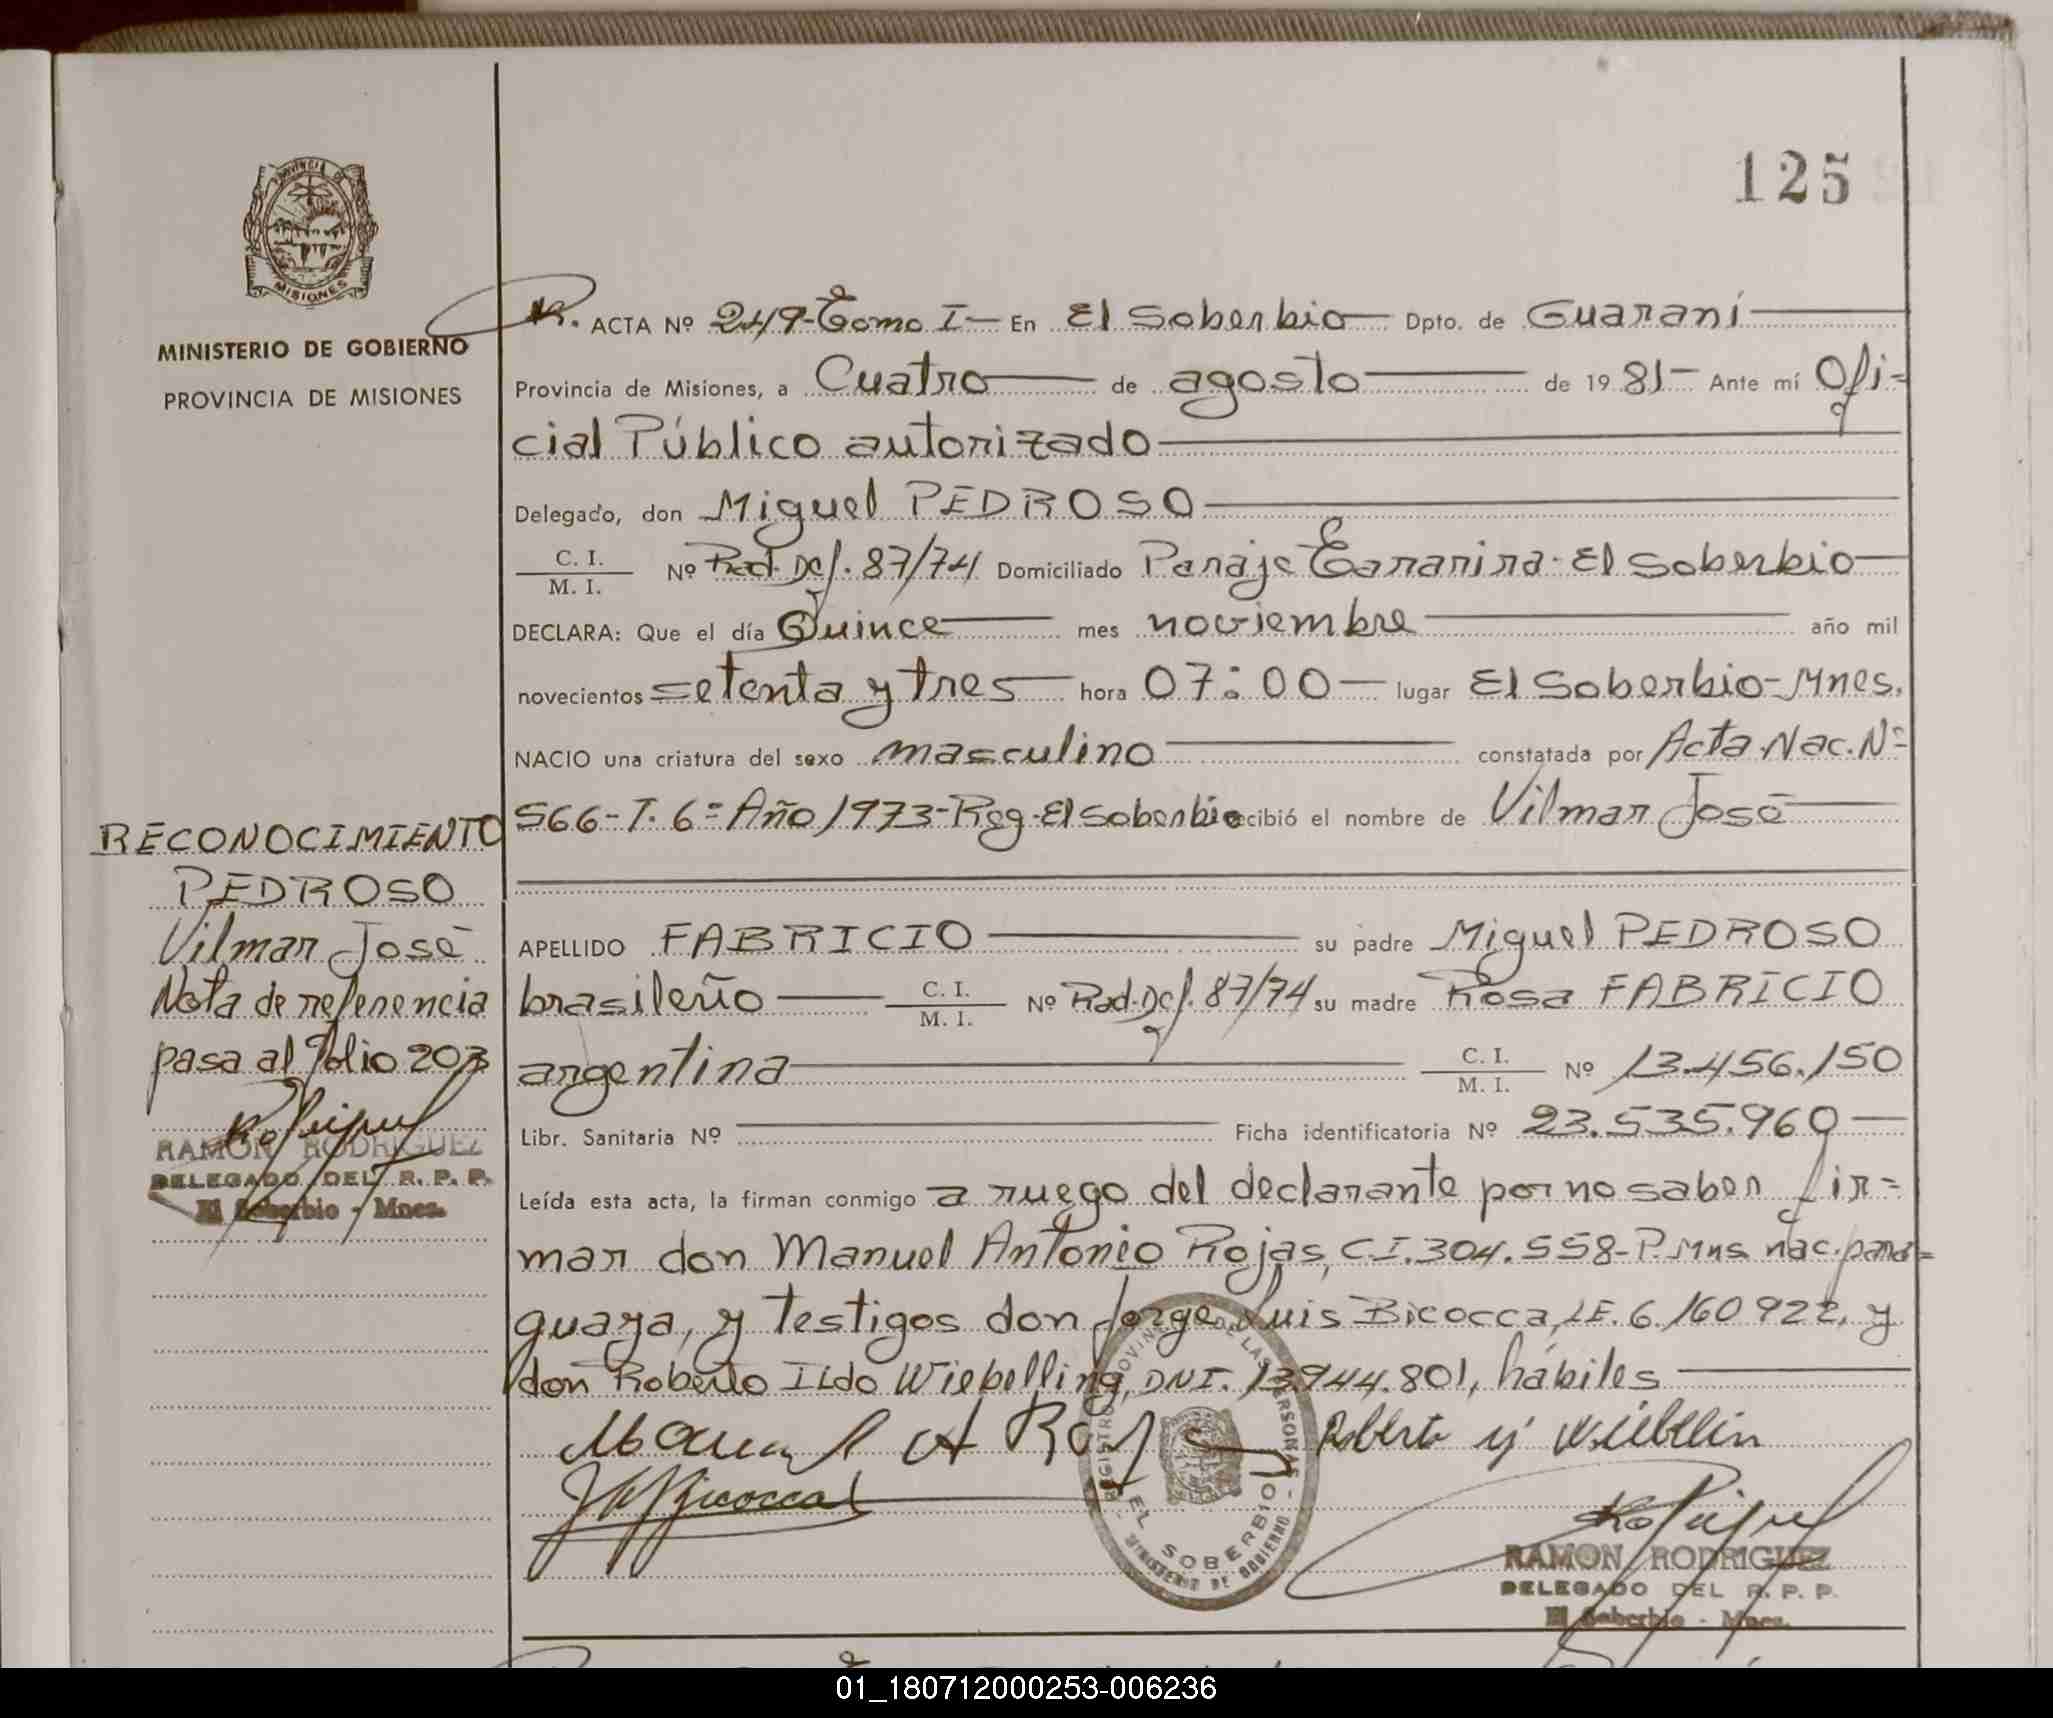 125
PROVINCIA DE
MISIONES
MINISTERIO DE GOBIERNO
PROVINCIA DE MISIONES
R. ACTA Nº 249-Tomo I- En El Soberbio Dpto. de Guaraní
Provincia de Misiones, a Cuatro de agosto de 1981- Ante mí Ofi=
cial Público autorizado
Delegado, don Miguel PEDROSO
C. I.
M. I. Nº Rad. Def. 87/74 Domiciliado Paraje Tararira-El Soberbio
DECLARA: Que el día Quince mes noviembre año mil
novecientos setenta y tres hora 07:00 lugar El Soberbio-Mnes.
NACIO una criatura del sexo masculino constatada por Acta.Nac.Nº
566-T.6º Año 1973-Reg.El Soberbio recibió el nombre de Vilmar José
APELLIDO FABRICIO su padre Miguel PEDROSO
brasileño C. I.
M. I. Nº Rad.Def. 87/74 su madre Rosa FABRICIO
argentina C. I.
M. I. Nº 13.456.150
Libr. Sanitaria Nº Ficha identificatoria Nº 23.535.960
Leída esta acta, la firman conmigo a ruego del declarante por no saber fir=
mar don Manuel Antonio Rojas, C.I.304.558-P.Mns nac.para=
guaya, y testigos don Jorge Luis Bicocca, LE. 6.160.922, y
don Roberto Ildo Wiebelling, DNI. 13.944.801, hábiles
Manuel A Rojas
Roberto y Wiebellin
Bicocca
REGISTRO PROVINCIAL DE LAS PERSONAS
EL SOBERBIO
MINISTERIO DE GOBIERNO
RAMON RODRIGUEZ
DELEGADO DEL R. P. P.
El Soberbio - Mnes.
RECONOCIMIENTO
PEDROSO
Vilmar José
Nota de referencia
pasa al folio 203
RAMON RODRIGUEZ
DELEGADO DEL R. P. P.
El Soberbio - Mnes.
01_180712000253-006236